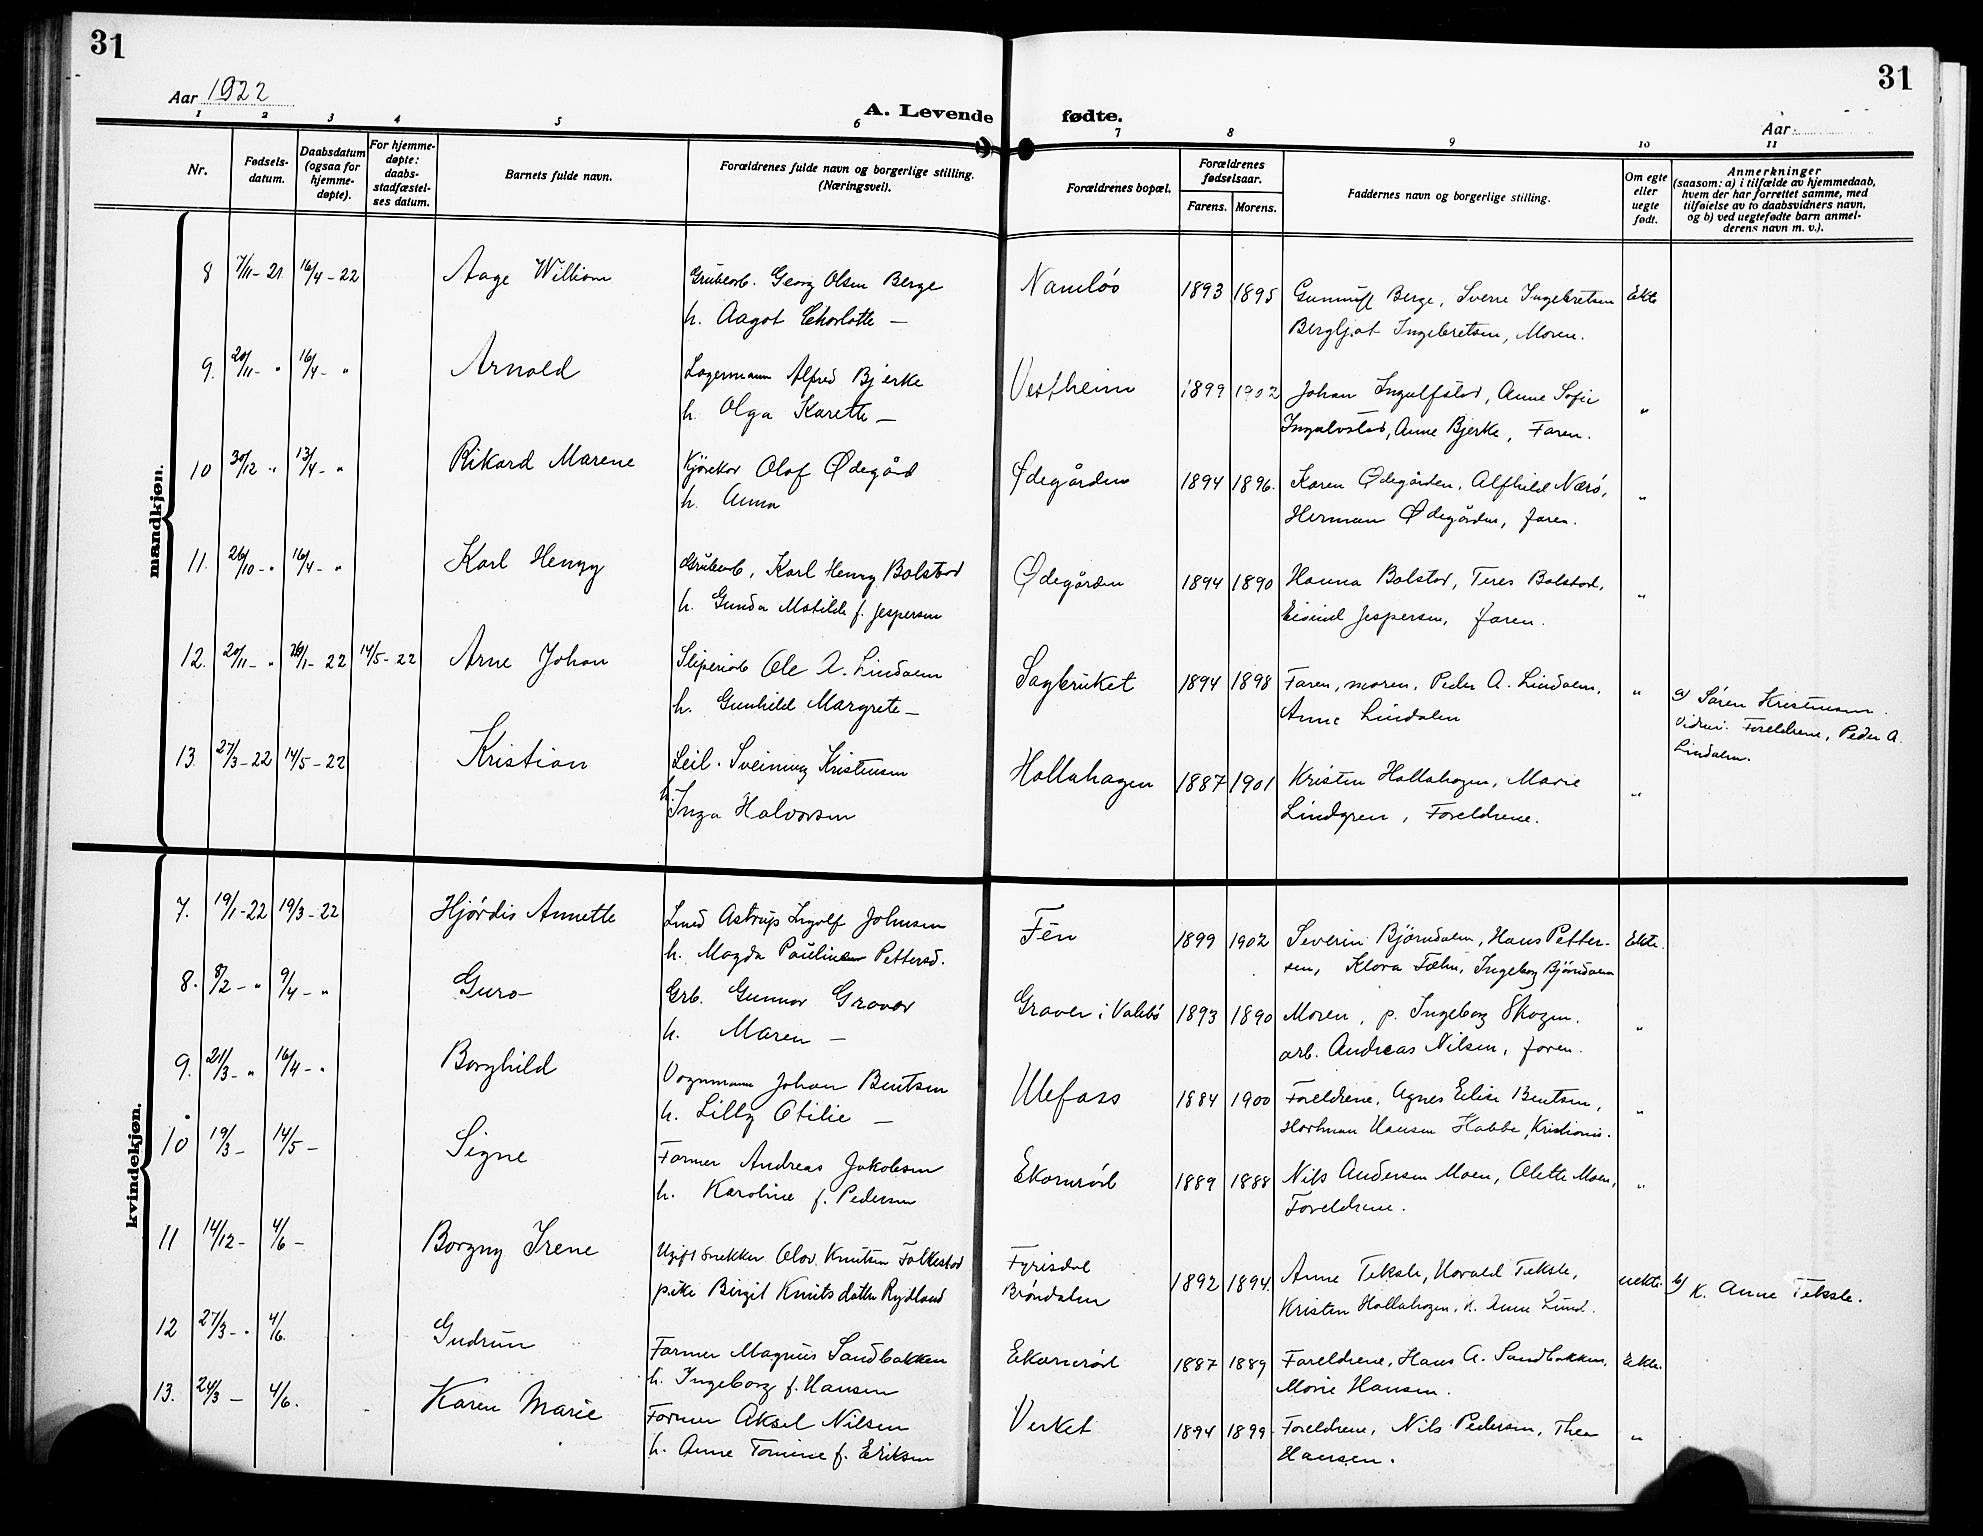 31
31
Aar 1922
A. Levende fødte.
Aar
1 2 3 4 5 6 7 8 9 10 11
Nr.
Fødselsdatum.
Daabsdatum (ogsaa for hjemmedøpte).
For hjemmedøpte: daabsstadfæstelses datum.
Barnets fulde navn.
Forældrenes fulde navn og borgerlige stilling. (Næringsvei).
Forældrenes bopæl.
Forældrenes fødselsaar.
Farens. Morens.
Faddernes navn og borgerlige stilling.
Om egte eller uegte født.
Anmerkninger
(saasom: a) i tilfælde av hjemmedaab,
hvem der har forrettet samme, med
tilføielse av to daabsvidners navn,
og b) ved uegtefødte barn anmel-
derens navn m. v.).
mandkjøn.
8 7/11-21 16/4-22 Aage William Grubearb. Georg Olsen Berge Namløs 1893 1895 Gunnulf Berge, Sverre Ingebretsen Ekte
h. Aagot Charlotte — Bergljot Ingebretsen, Moren.
9. 20/11- " 16/4- " Arnold Lagermann Alfred Bjerke Vestheim 1899 1902 Johan Ingulfstad, Anne Sofie "
h. Olga Karette — Ingulvstad, Anne Bjerke, Faren.
10 30/12 " 13/4- " Rikard Marene Kjørekar Olaf Ødegård Ødegården 1894 1896. Karen Ødegården, Alfhild Nærø, "
h. Anna Herman Ødegården, faren.
11. 26/10- " 16/4- " Karl Henry Grubearb, Karl Henry Bolstad Ødegården 1894 1890 Hanna Bolstad, Teres Bolstad, "
h. Gunda Matilde f. Jespersen Eivind Jespersen, faren.
12. 20/11- " 26/1-22 14/5-22 Arne Johan Sliperiarb Ole A. Lindalen Sagbruket 1894 1898 Faren, moren, Peder A. Lindalen, " a) Søren Kristensen.
h. Gunhild Margrete — Anne Lindalen Vidner: Foreldrene, Peder A.
Lindalen.
13. 27/3-22 14/5-22 Kristian Leil. Sveinung Kristensen Hollahagen 1887 1901 Kristen Hollahagen, Marie "
h. Inga Halvorsen Lindgren, Foreldrene.
kvindekjøn.
7. 19/1-22 19/3-22 Hjørdis Annette Smed Astrup Ingolf Johnsen Fen 1899 1902 Severin Bjørndalen, Hans Petter- Ekte.
h. Magda Pauline Pettersd. sen, Klara Fæhn, Ingeborg Bjørndalen
8. 8/2- " 9/4- " Guro Grb. Gunnar Graver Graver i Valebø 1893 1890 Moren, p. Ingeborg Skogen. "
h. Maren — arb. Andreas Nilsen, faren.
9. 21/3- " 16/4- " Borghild Vognmann Johan Bentsen Ulefoss 1884 1900 Foreldrene, Agnes Elise Bentsen, "
h. Lilly Otilie — Hartman Hansen Habbe, Kristiania.
10 19/3- 14/5- Signe Farmer Andreas Jakobsen Ekornrød 1889 1888 Nils Andersen Moen, Olette Moen, "
h. Karoline f. Pedersen Foreldrene.
11 14/12- 4/6- Borgny Irene Ugift snekker Olav Knutsen Folkestad Fyrisdal 1892 1894. Anne Teksle, Harald Teksle, uekte. b) K. Anne Teksle.
pike Birgit Knutsdatter Rydland Brøndalen Kristen Hollahagen, K. Anne Lund.
12 27/3- " 4/6. Gudrun Farmer Magnus Sandbakken Ekornrød 1887 1889 Foreldrene, Hans A. Sandbakken, Ekte.
h. Ingeborg f. Hansen Marie Hansen.
13. 24/3- 4/6. Karen Marie Farmer Aksel Nilsen Verket 1894 1899 Foreldrene, Nils Pedersen, Thea "
h. Anne Tomine f. Eriksen Hansen.